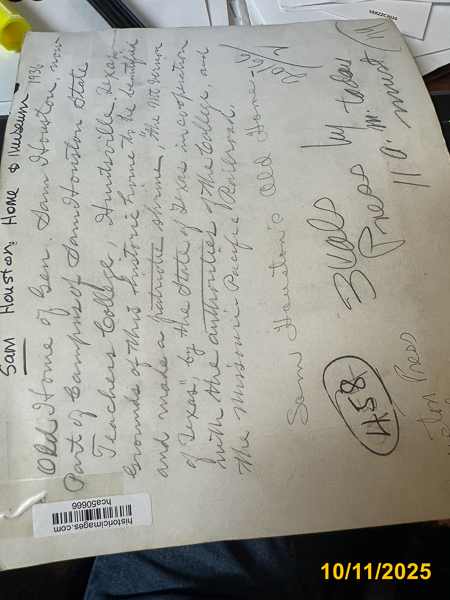 Sam Houston Home & Museum 1936
Old Home of Gen. Sam Houston, now
Part of Campus of Sam Houston State
Teachers College, Huntsville, Texas
Grounds of this historic home to be beautified
and made a patriotic shrine, "the Mt Vernon
of Texas" by the State of Texas in cooperation
with the authorities of the College, and
the Missouri Pacific Railroad.
Sam Houston's Old Home
3 cols
Press
by today
11 a.m. must
458
ton Press
historicimages.com
hca50666
10/11/2025